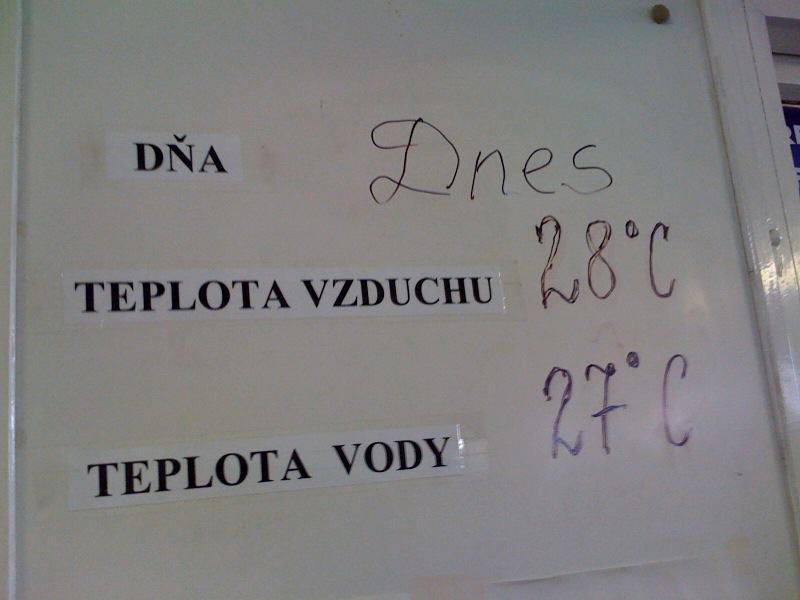 DŇA Dnes
TEPLOTA VZDUCHU 28°C
TEPLOTA VODY 27°C